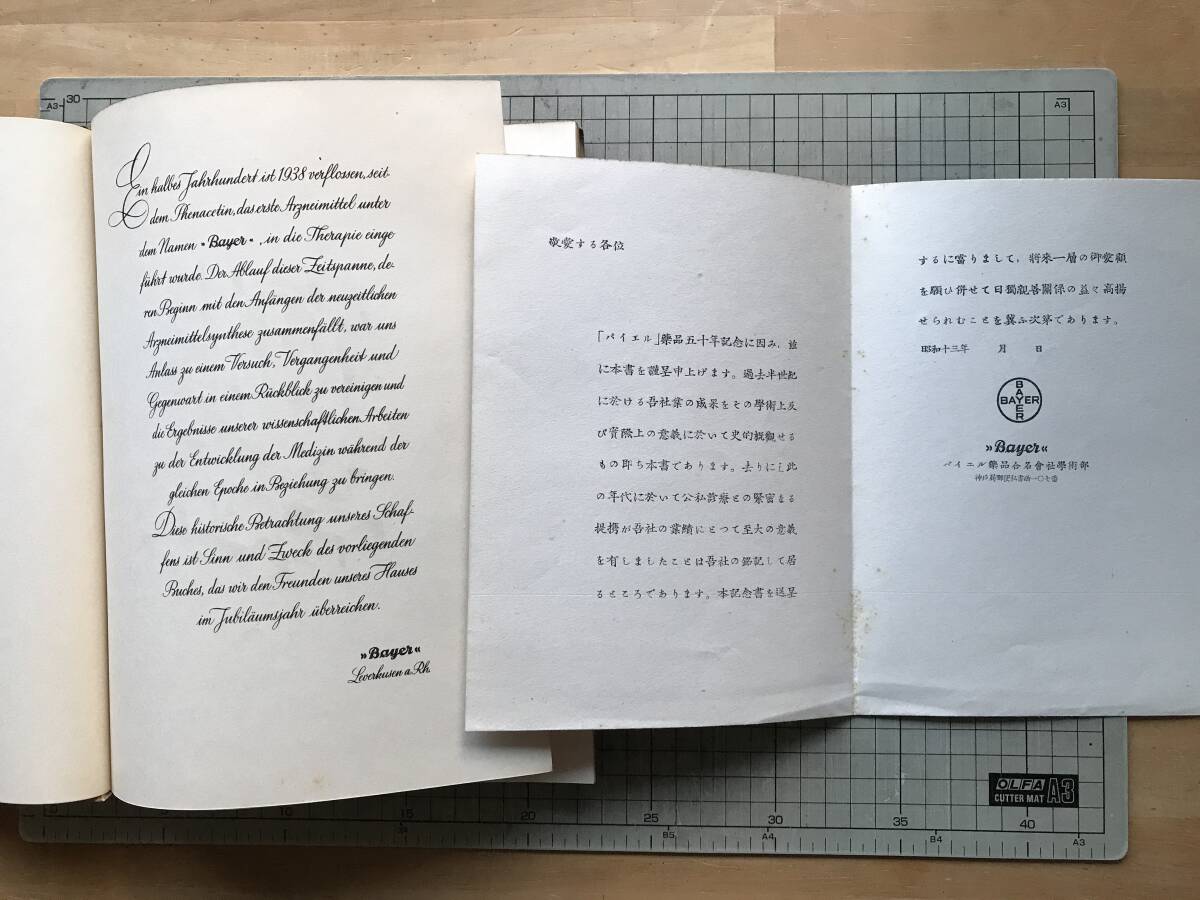 Ein halbes Jahrhundert ist 1938 verflossen, seit
dem Phenacetin, das erste Arzneimittel unter
dem Namen »Bayer«, in die Therapie einge
führt wurde. Der Ablauf dieser Zeitspanne, de-
ren Beginn mit den Anfängen der neuzeitlichen
Arzneimittelsynthese zusammenfällt, war uns
Anlass zu einem Versuch, Vergangenheit und
Gegenwart in einem Rückblick zu vereinigen und
die Ergebnisse unserer wissenschaftlichen Arbeiten
zu der Entwicklung der Medizin während der
gleichen Epoche in Beziehung zu bringen.
Diese historische Betrachtung unseres Schaf-
fens ist Sinn und Zweck des vorliegenden
Buches, das wir den Freunden unseres Hauses
im Jubiläumsjahr überreichen.
»Bayer«
Leverkusen a. Rh.
敬愛する各位
「バイエル」藥品五十年記念に因み、玆
に本書を謹呈申上げます。過去半世紀
に於ける吾社業の成果をその學術上及
び實際上の意義に於いて史的概觀せる
もの即ち本書であります。去りにし此
の年代に於いて公私診療との緊密なる
提携が吾社の業績にとつて至大の意義
を有しましたことは吾社の銘記して居
るところであります。本記念書を送呈
するに當りまして、將來一層の御愛顧
を願ひ併せて日獨親善關係の益々高揚
せられむことを冀ふ次第であります。
昭和十三年 月 日
BAYER
BAYER
»Bayer«
バイエル藥品合名會社學術部
神戸局郵便私書函一〇七番
A3
30
A3
OLFA
CUTTER MAT A3
10
15
20
25
30
35
40
B5
A4
B4
A3